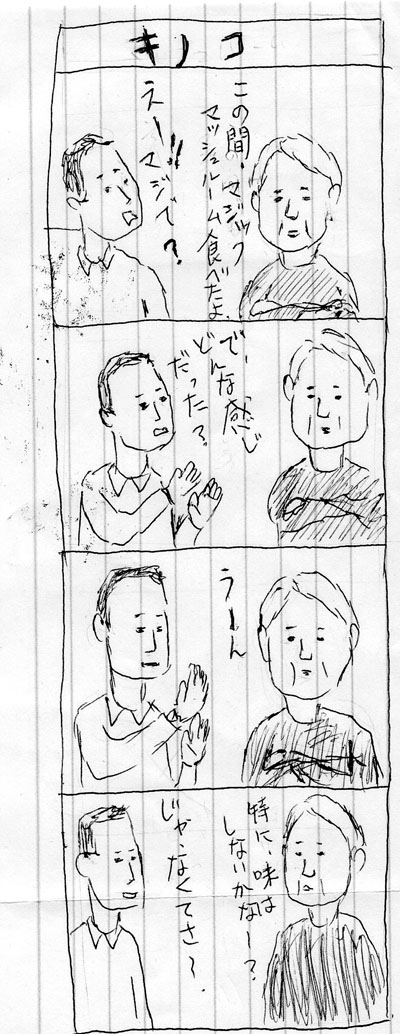 キノコ
この間、マジック
マッシュルーム食べたよ。
えー!!
マジで?
で、
どんな感じ
だった?
うーん
特に、味は
しないかなー?
じゃ、なくてさ〜。